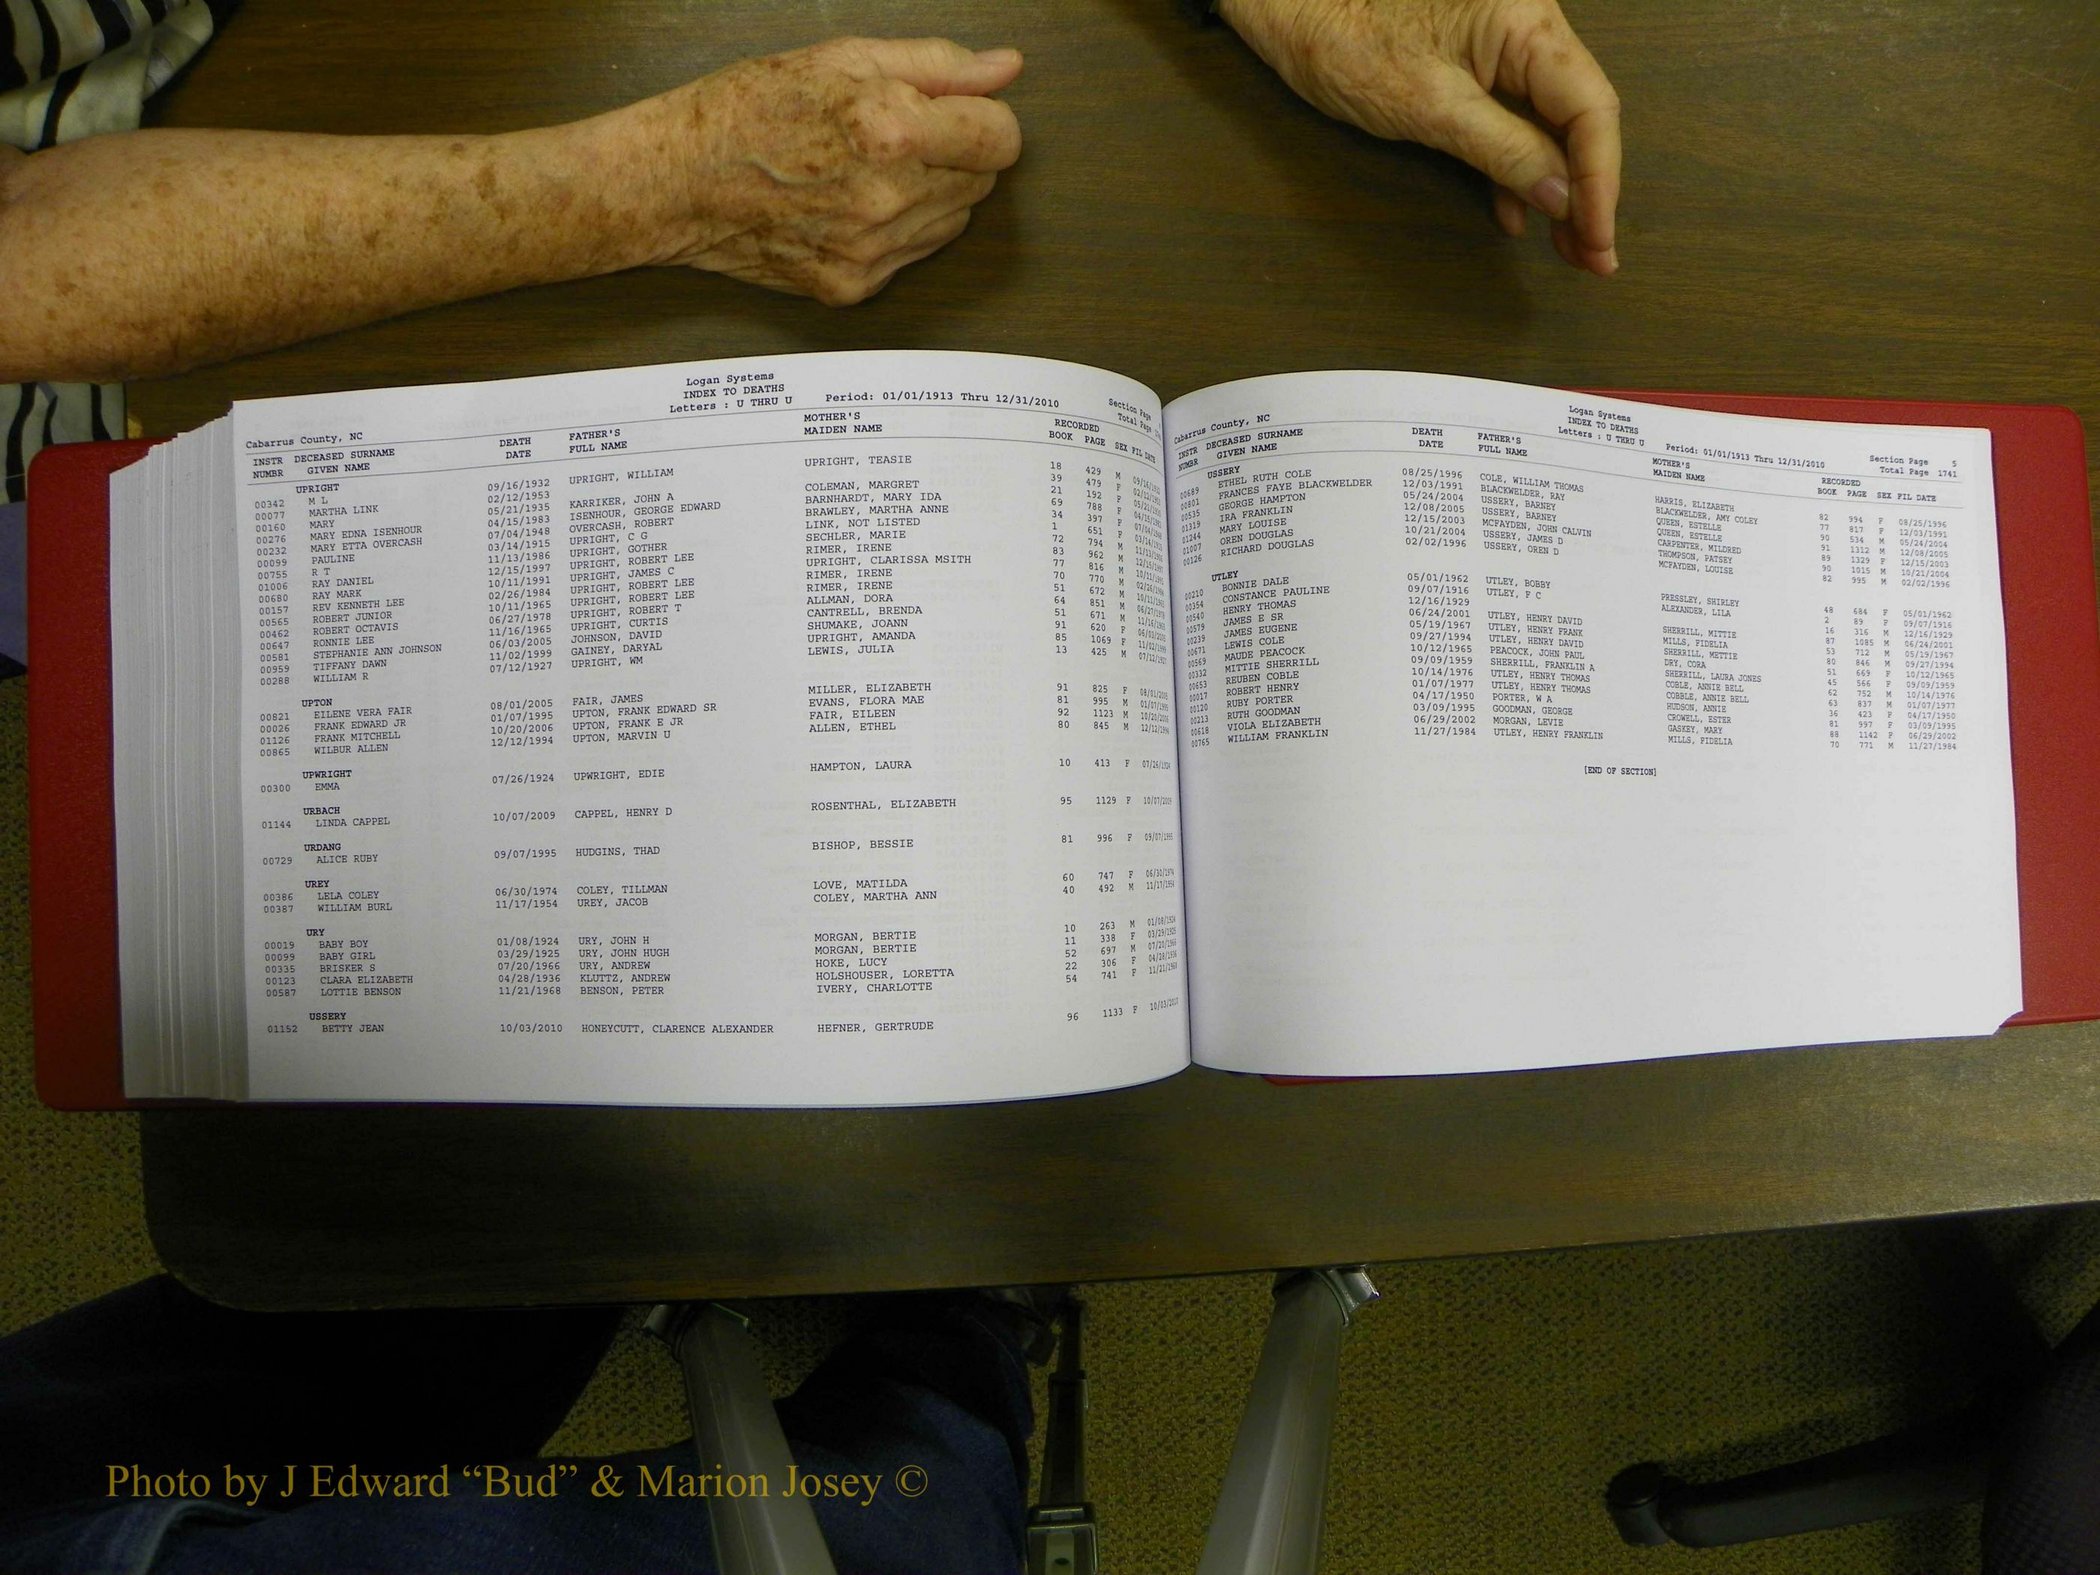 Logan Systems
INDEX TO DEATHS
Letters : U THRU U Period: 01/01/1913 Thru 12/31/2010 Section Page
Cabarrus County, NC Total Page
INSTR NUMBR DECEASED SURNAME GIVEN NAME DEATH DATE FATHER'S FULL NAME MOTHER'S MAIDEN NAME RECORDED BOOK PAGE SEX FIL DATE
UPRIGHT
00342 M L 09/16/1932 UPRIGHT, WILLIAM UPRIGHT, TEASIE 18 429 M 09/16/1932
00077 MARTHA LINK 02/12/1953 39 479 F 02/12/1953
00160 MARY 05/21/1935 KARRIKER, JOHN A COLEMAN, MARGRET 21 192 F 05/21/1935
00276 MARY EDNA ISENHOUR 04/15/1983 ISENHOUR, GEORGE EDWARD BARNHARDT, MARY IDA 69 788 F 04/15/1983
00232 MARY ETTA OVERCASH 07/04/1948 OVERCASH, ROBERT BRAWLEY, MARTHA ANNE 34 397 F 07/04/1948
00099 PAULINE 03/14/1915 UPRIGHT, C G LINK, NOT LISTED 1 651 F 03/14/1915
00755 R T 11/13/1986 UPRIGHT, GOTHER SECHLER, MARIE 72 794 M 11/13/1986
01006 RAY DANIEL 12/15/1997 UPRIGHT, ROBERT LEE RIMER, IRENE 83 962 M 12/15/1997
00680 RAY MARK 10/11/1991 UPRIGHT, JAMES C UPRIGHT, CLARISSA MSITH 77 816 M 10/11/1991
00157 REV KENNETH LEE 02/26/1984 UPRIGHT, ROBERT LEE RIMER, IRENE 70 770 M 02/26/1984
00565 ROBERT JUNIOR 10/11/1965 UPRIGHT, ROBERT LEE RIMER, IRENE 51 672 M 10/11/1965
00462 ROBERT OCTAVIS 06/27/1978 UPRIGHT, ROBERT T ALLMAN, DORA 64 851 M 06/27/1978
00647 RONNIE LEE 11/16/1965 UPRIGHT, CURTIS CANTRELL, BRENDA 51 671 M 11/16/1965
00581 STEPHANIE ANN JOHNSON 06/03/2005 JOHNSON, DAVID SHUMAKE, JOANN 91 620 F 06/03/2005
00959 TIFFANY DAWN 11/02/1999 GAINEY, DARYAL UPRIGHT, AMANDA 85 1069 F 11/02/1999
00288 WILLIAM R 07/12/1927 UPRIGHT, WM LEWIS, JULIA 13 425 M 07/12/1927
UPTON
00821 EILENE VERA FAIR 08/01/2005 FAIR, JAMES MILLER, ELIZABETH 91 825 F 08/01/2005
00026 FRANK EDWARD JR 01/07/1995 UPTON, FRANK EDWARD SR EVANS, FLORA MAE 81 995 M 01/07/1995
01126 FRANK MITCHELL 10/20/2006 UPTON, FRANK E JR FAIR, EILEEN 92 1123 M 10/20/2006
00865 WILBUR ALLEN 12/12/1994 UPTON, MARVIN U ALLEN, ETHEL 80 845 M 12/12/1994
UPWRIGHT
00300 EMMA 07/26/1924 UPWRIGHT, EDIE HAMPTON, LAURA 10 413 F 07/26/1924
URBACH
01144 LINDA CAPPEL 10/07/2009 CAPPEL, HENRY D ROSENTHAL, ELIZABETH 95 1129 F 10/07/2009
URDANG
00729 ALICE RUBY 09/07/1995 HUDGINS, THAD BISHOP, BESSIE 81 996 F 09/07/1995
UREY
00386 LELA COLEY 06/30/1974 COLEY, TILLMAN LOVE, MATILDA 60 747 F 06/30/1974
00387 WILLIAM BURL 11/17/1954 UREY, JACOB COLEY, MARTHA ANN 40 492 M 11/17/1954
URY
00019 BABY BOY 01/08/1924 URY, JOHN H MORGAN, BERTIE 10 263 M 01/08/1924
00099 BABY GIRL 03/29/1925 URY, JOHN HUGH MORGAN, BERTIE 11 338 F 03/29/1925
00335 BRISKER S 07/20/1966 URY, ANDREW HOKE, LUCY 52 697 M 07/20/1966
00123 CLARA ELIZABETH 04/28/1936 KLUTTZ, ANDREW HOLSHOUSER, LORETTA 22 306 F 04/28/1936
00587 LOTTIE BENSON 11/21/1968 BENSON, PETER IVERY, CHARLOTTE 54 741 F 11/21/1968
USSERY
01152 BETTY JEAN 10/03/2010 HONEYCUTT, CLARENCE ALEXANDER HEFNER, GERTRUDE 96 1133 F 10/03/2010
Logan Systems
INDEX TO DEATHS
Letters : U THRU U Period: 01/01/1913 Thru 12/31/2010 Section Page 5
Cabarrus County, NC Total Page 1741
INSTR NUMBR DECEASED SURNAME GIVEN NAME DEATH DATE FATHER'S FULL NAME MOTHER'S MAIDEN NAME RECORDED BOOK PAGE SEX FIL DATE
USSERY
00689 ETHEL RUTH COLE 08/25/1996 COLE, WILLIAM THOMAS HARRIS, ELIZABETH 82 994 F 08/25/1996
00801 FRANCES FAYE BLACKWELDER 12/03/1991 BLACKWELDER, RAY BLACKWELDER, AMY COLEY 77 817 F 12/03/1991
00535 GEORGE HAMPTON 05/24/2004 USSERY, BARNEY QUEEN, ESTELLE 90 534 M 05/24/2004
01319 IRA FRANKLIN 12/08/2005 USSERY, BARNEY QUEEN, ESTELLE 91 1312 M 12/08/2005
01244 MARY LOUISE 12/15/2003 MCFAYDEN, JOHN CALVIN CARPENTER, MILDRED 89 1329 F 12/15/2003
01007 OREN DOUGLAS 10/21/2004 USSERY, JAMES D THOMPSON, PATSEY 90 1015 M 10/21/2004
00126 RICHARD DOUGLAS 02/02/1996 USSERY, OREN D MCFAYDEN, LOUISE 82 995 M 02/02/1996
UTLEY
00210 BONNIE DALE 05/01/1962 UTLEY, BOBBY PRESSLEY, SHIRLEY 48 684 F 05/01/1962
00354 CONSTANCE PAULINE 09/07/1916 UTLEY, F C ALEXANDER, LILA 2 89 F 09/07/1916
00540 HENRY THOMAS 12/16/1929 16 316 M 12/16/1929
00579 JAMES E SR 06/24/2001 UTLEY, HENRY DAVID SHERRILL, MITTIE 87 1085 M 06/24/2001
00239 JAMES EUGENE 05/19/1967 UTLEY, HENRY FRANK MILLS, FIDELIA 53 712 M 05/19/1967
00671 LEWIS COLE 09/27/1994 UTLEY, HENRY DAVID SHERRILL, METTIE 80 846 M 09/27/1994
00569 MAUDE PEACOCK 10/12/1965 PEACOCK, JOHN PAUL DRY, CORA 51 669 F 10/12/1965
00332 MITTIE SHERRILL 09/09/1959 SHERRILL, FRANKLIN A SHERRILL, LAURA JONES 45 566 F 09/09/1959
00653 REUBEN COBLE 10/14/1976 UTLEY, HENRY THOMAS COBLE, ANNIE BELL 62 752 M 10/14/1976
00017 ROBERT HENRY 01/07/1977 UTLEY, HENRY THOMAS COBBLE, ANNIE BELL 63 837 M 01/07/1977
00120 RUBY PORTER 04/17/1950 PORTER, W A HUDSON, ANNIE 36 423 F 04/17/1950
00213 RUTH GOODMAN 03/09/1995 GOODMAN, GEORGE CROWELL, ESTER 81 997 F 03/09/1995
00618 VIOLA ELIZABETH 06/29/2002 MORGAN, LEVIE GASKEY, MARY 88 1142 F 06/29/2002
00765 WILLIAM FRANKLIN 11/27/1984 UTLEY, HENRY FRANKLIN MILLS, FIDELIA 70 771 M 11/27/1984
[END OF SECTION]
Photo by J Edward “Bud” & Marion Josey ©